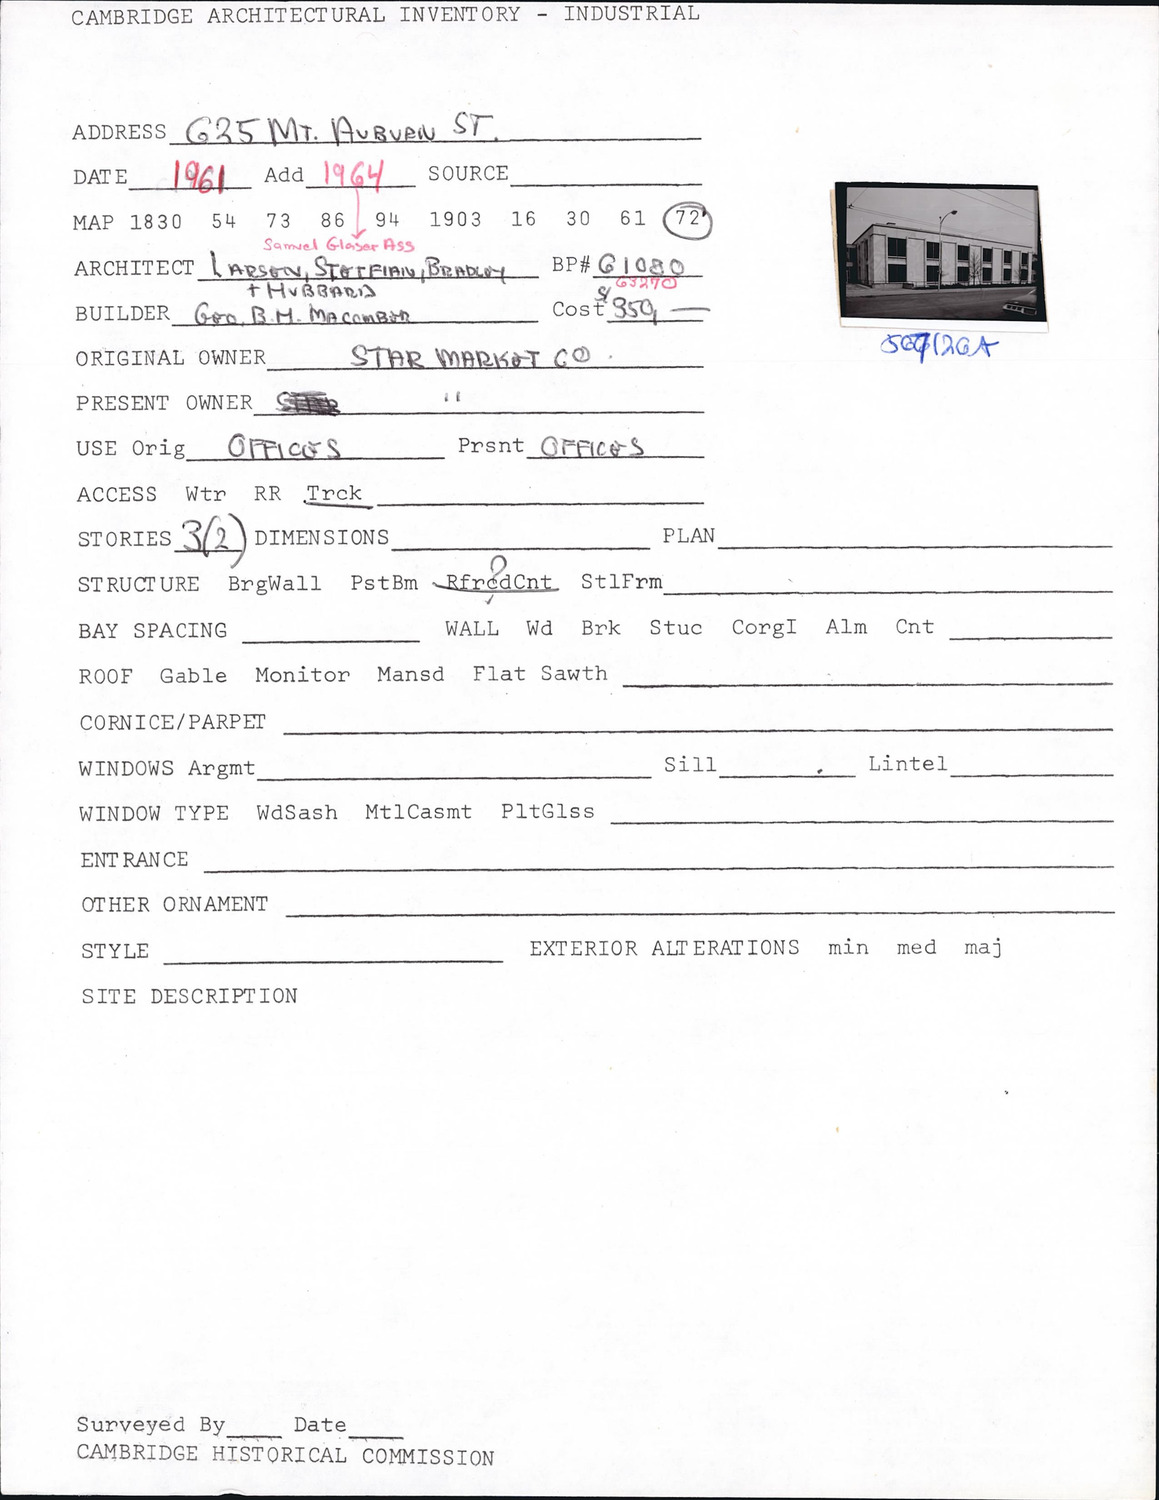 CAMBRIDGE ARCHITECTURAL INVENTORY - INDUSTRIAL
ADDRESS 625 MT. AUBURN ST.
DATE 1961 Add 1964 SOURCE
MAP 1830 54 73 86 94 1903 16 30 61 72
Samuel Glaser Ass
ARCHITECT LARSEN, STETFIAN, BRADLEY BP# 61080
+ HUBBARD 63270
BUILDER Geo. B.H. MACOMBER Cost $350,—
ORIGINAL OWNER STAR MARKET CO.
PRESENT OWNER "
USE Orig OFFICES Prsnt OFFICES
ACCESS Wtr RR Trck
STORIES 3(2) DIMENSIONS PLAN
STRUCTURE BrgWall PstBm RfrcdCnt ? StlFrm
BAY SPACING WALL Wd Brk Stuc CorgI Alm Cnt
ROOF Gable Monitor Mansd Flat Sawth
CORNICE/PARPET
WINDOWS Argmt Sill Lintel
WINDOW TYPE WdSash MtlCasmt PltGlss
ENTRANCE
OTHER ORNAMENT
STYLE EXTERIOR ALTERATIONS min med maj
SITE DESCRIPTION
Surveyed By Date
CAMBRIDGE HISTORICAL COMMISSION